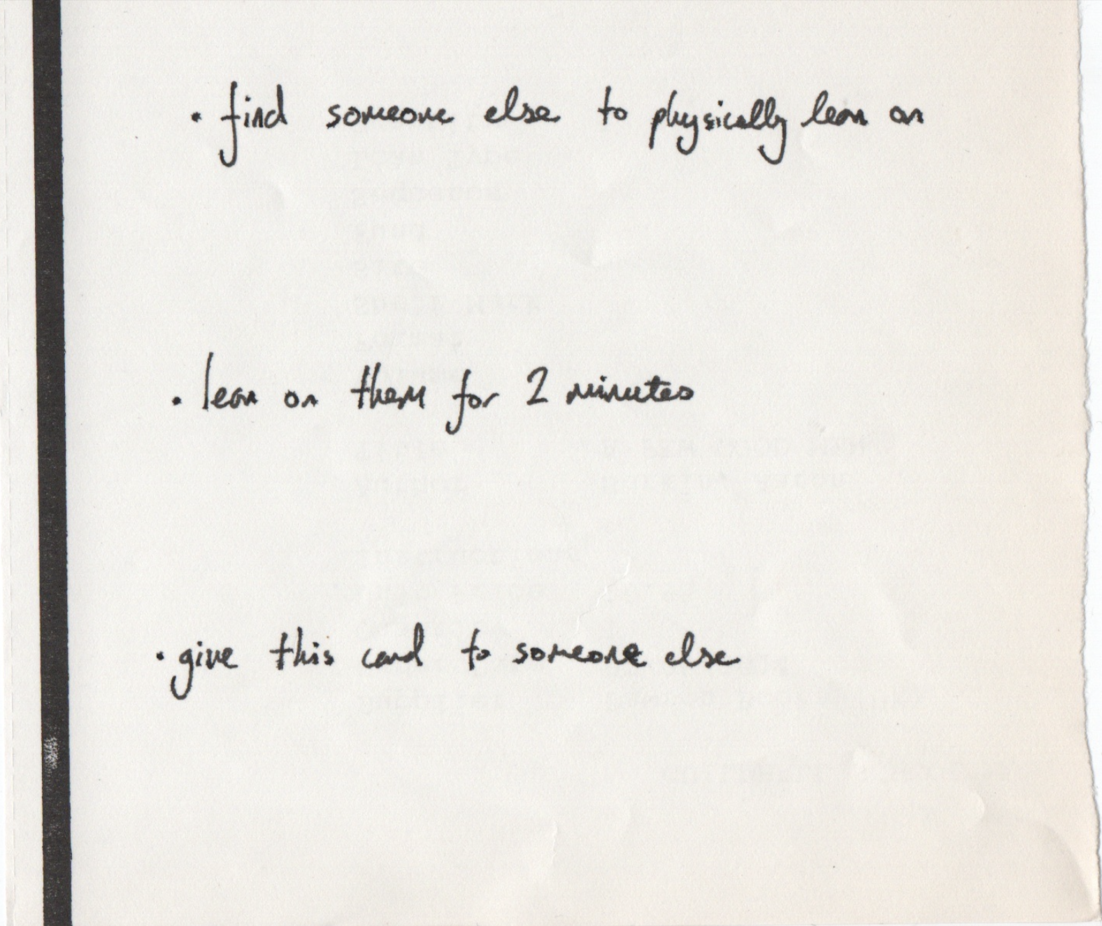 • find someone else to physically lean on
• lean on them for 2 minutes
• give this card to someone else